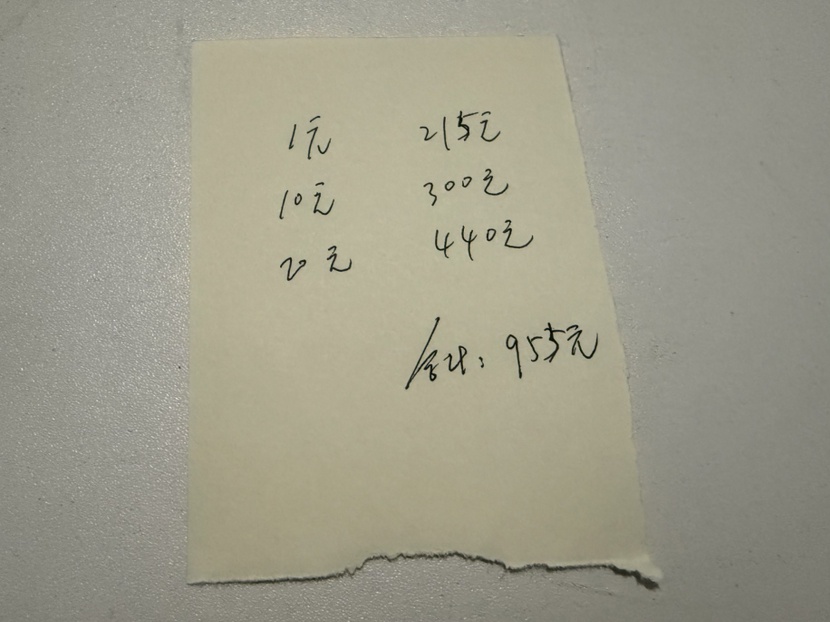 1元 215元
10元 300元
20元 440元
合计：955元